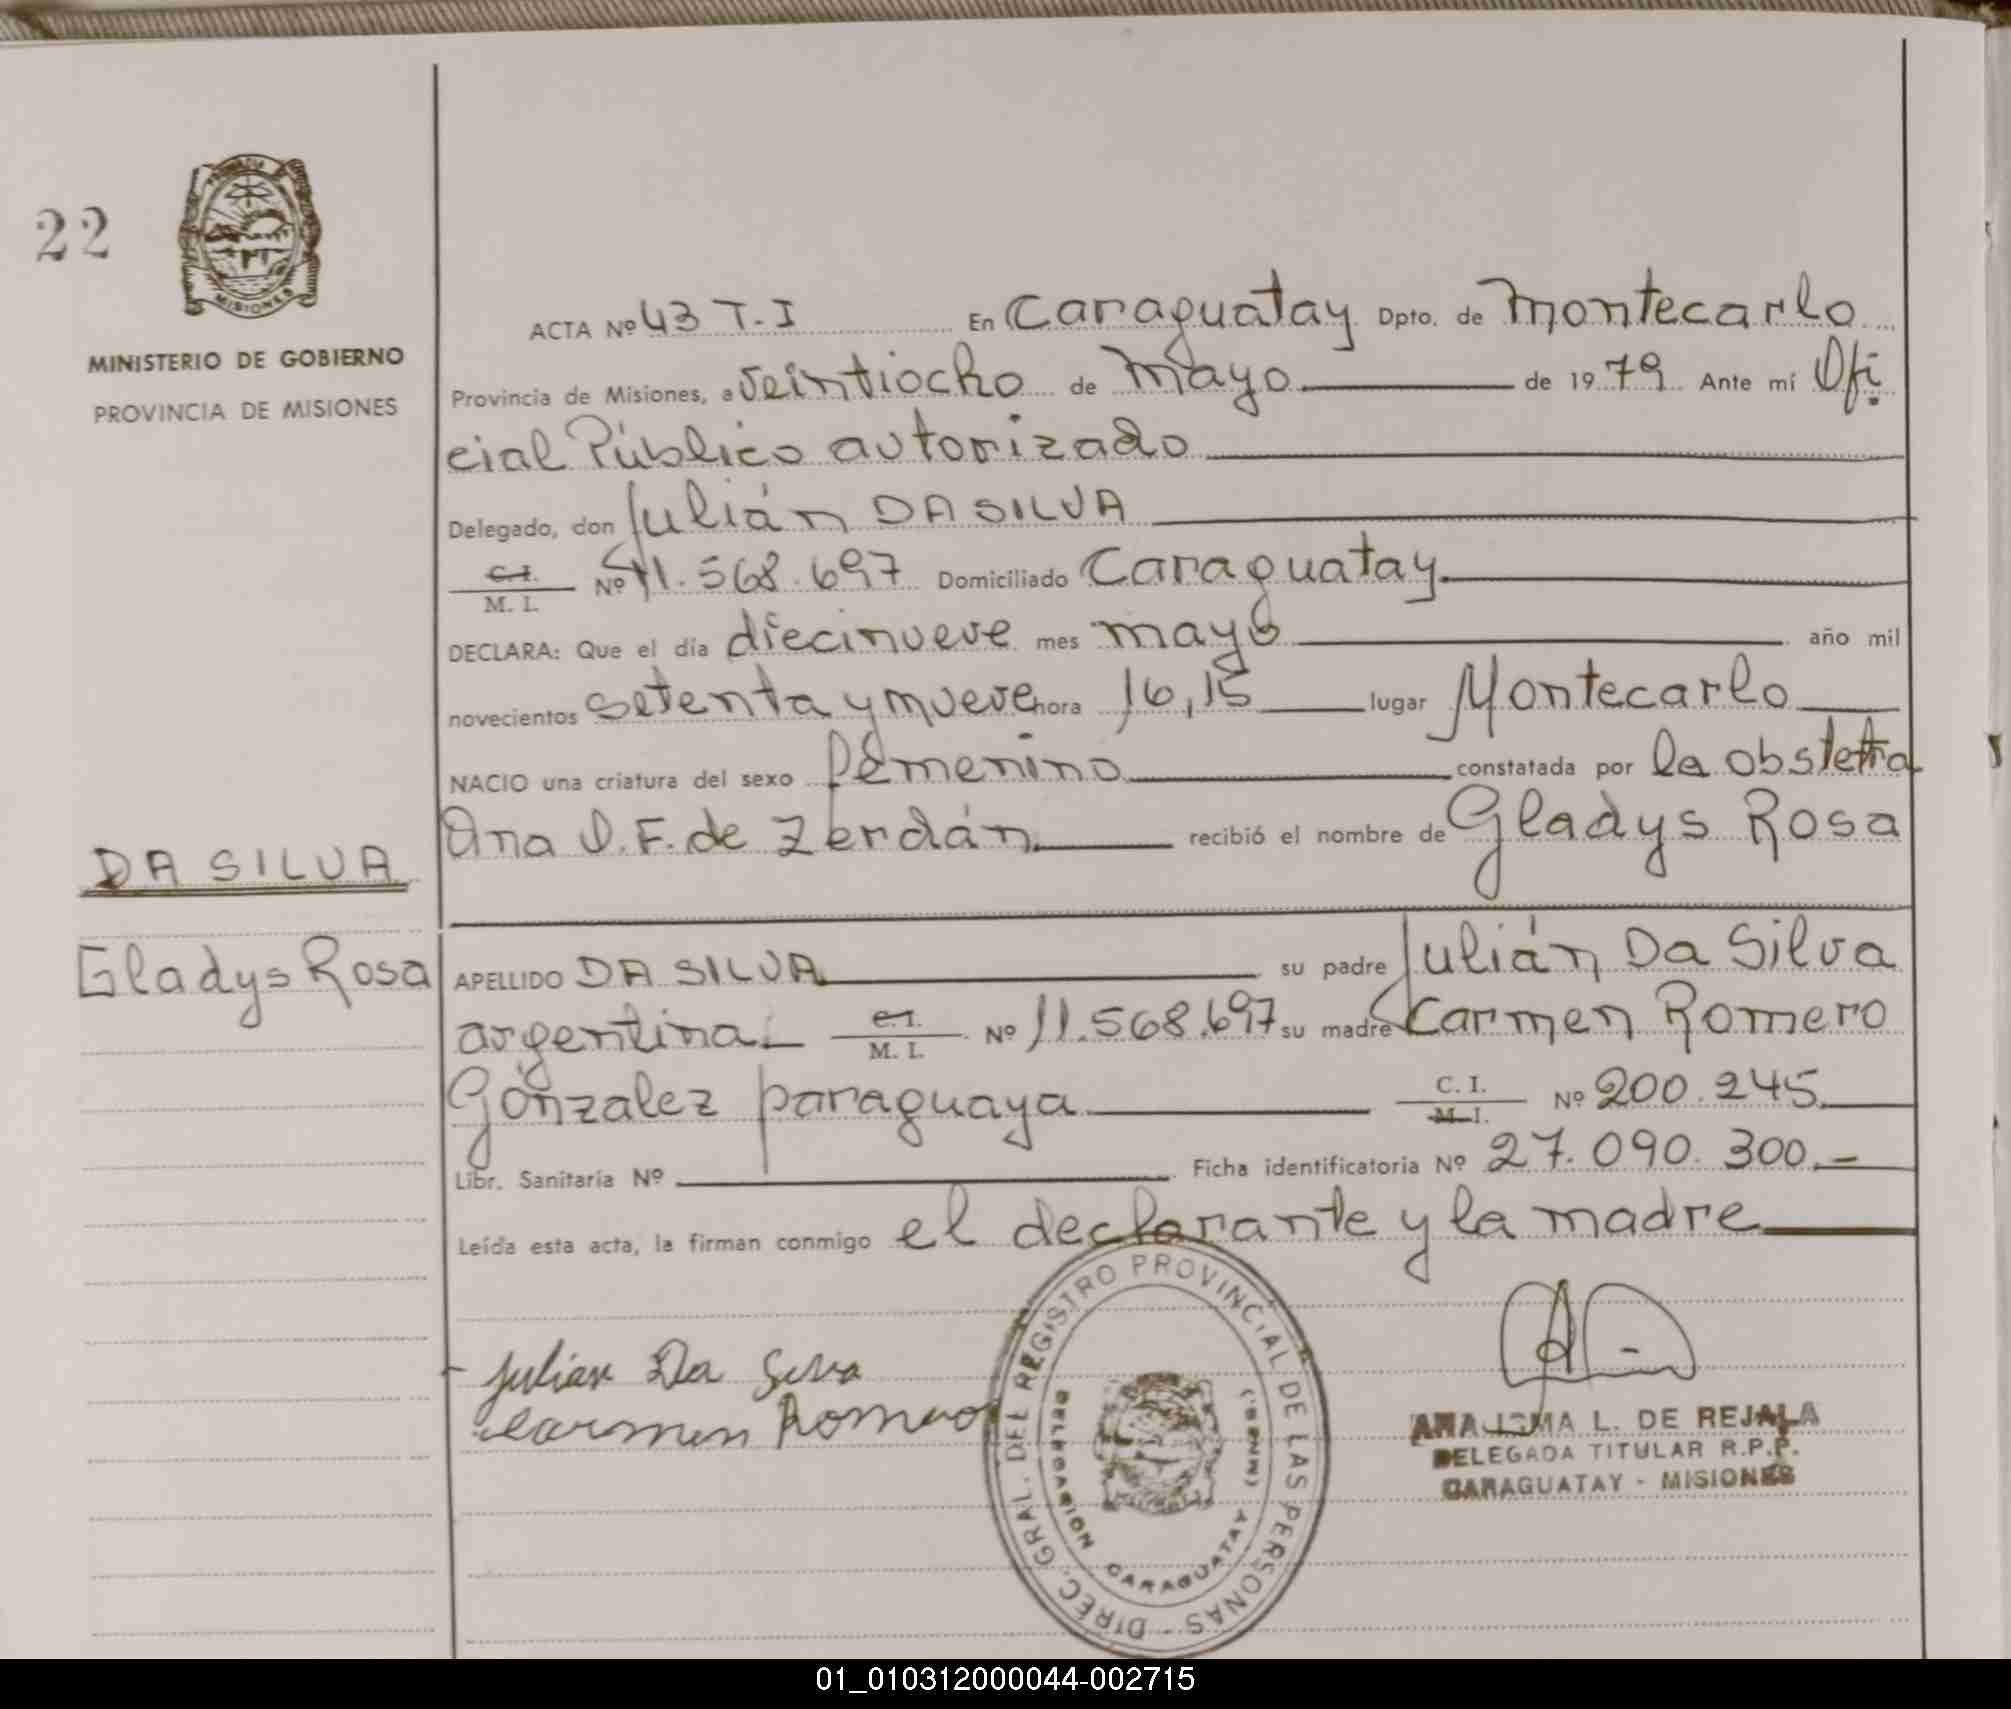 22
PROVINCIA
MISIONES
MINISTERIO DE GOBIERNO
PROVINCIA DE MISIONES
ACTA Nº 43 T-I En Caraguatay Dpto. de Montecarlo
Provincia de Misiones, a veintiocho de Mayo de 1979 Ante mí Ofi
cial Público autorizado
Delegado, don Julián DA SILVA
C.I. M. I. Nº 11.568.697 Domiciliado Caraguatay
DECLARA: Que el día diecinueve mes mayo año mil
novecientos setenta y nueve hora 16,15 lugar Montecarlo
NACIO una criatura del sexo femenino constatada por la obstetra
Ana I. F. de Zerdán recibió el nombre de Gladys Rosa
DA SILVA
Gladys Rosa
APELLIDO DA SILVA su padre Julián Da Silva
argentina C.I. M. I. Nº 11.568.697 su madre Carmen Romero
Gónzalez paraguaya C. I. M. I. Nº 200.245
Libr. Sanitaria Nº Ficha identificatoria Nº 27.090.300.-
Leída esta acta, la firman conmigo el declarante y la madre
Julian Da Silva
Carmen Romero
DIREC. GRAL. DEL REGISTRO PROVINCIAL DE LAS PERSONAS -
DELEGACION CARAGUATAY (MNES.)
ANA IRMA L. DE REJALA
DELEGADA TITULAR R.P.P.
CARAGUATAY - MISIONES
01_010312000044-002715